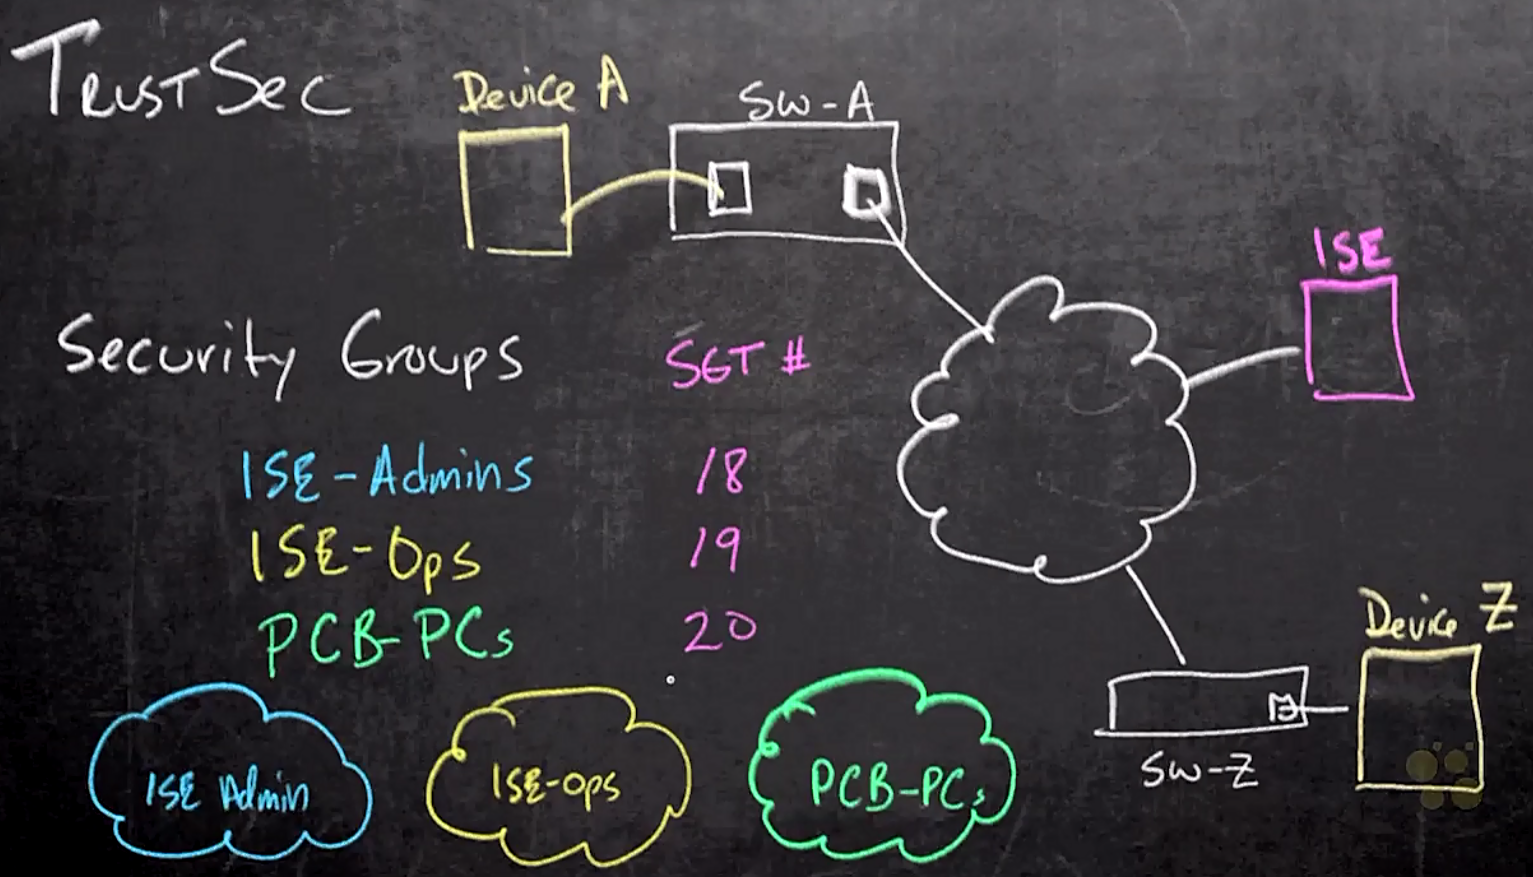 TRUSTSEC
Device A
SW-A
ISE
Security Groups SGT #
ISE-Admins 18
ISE-Ops 19
PCB-PCs 20
Device Z
SW-Z
ISE Admin
ISE-Ops
PCB-PCs